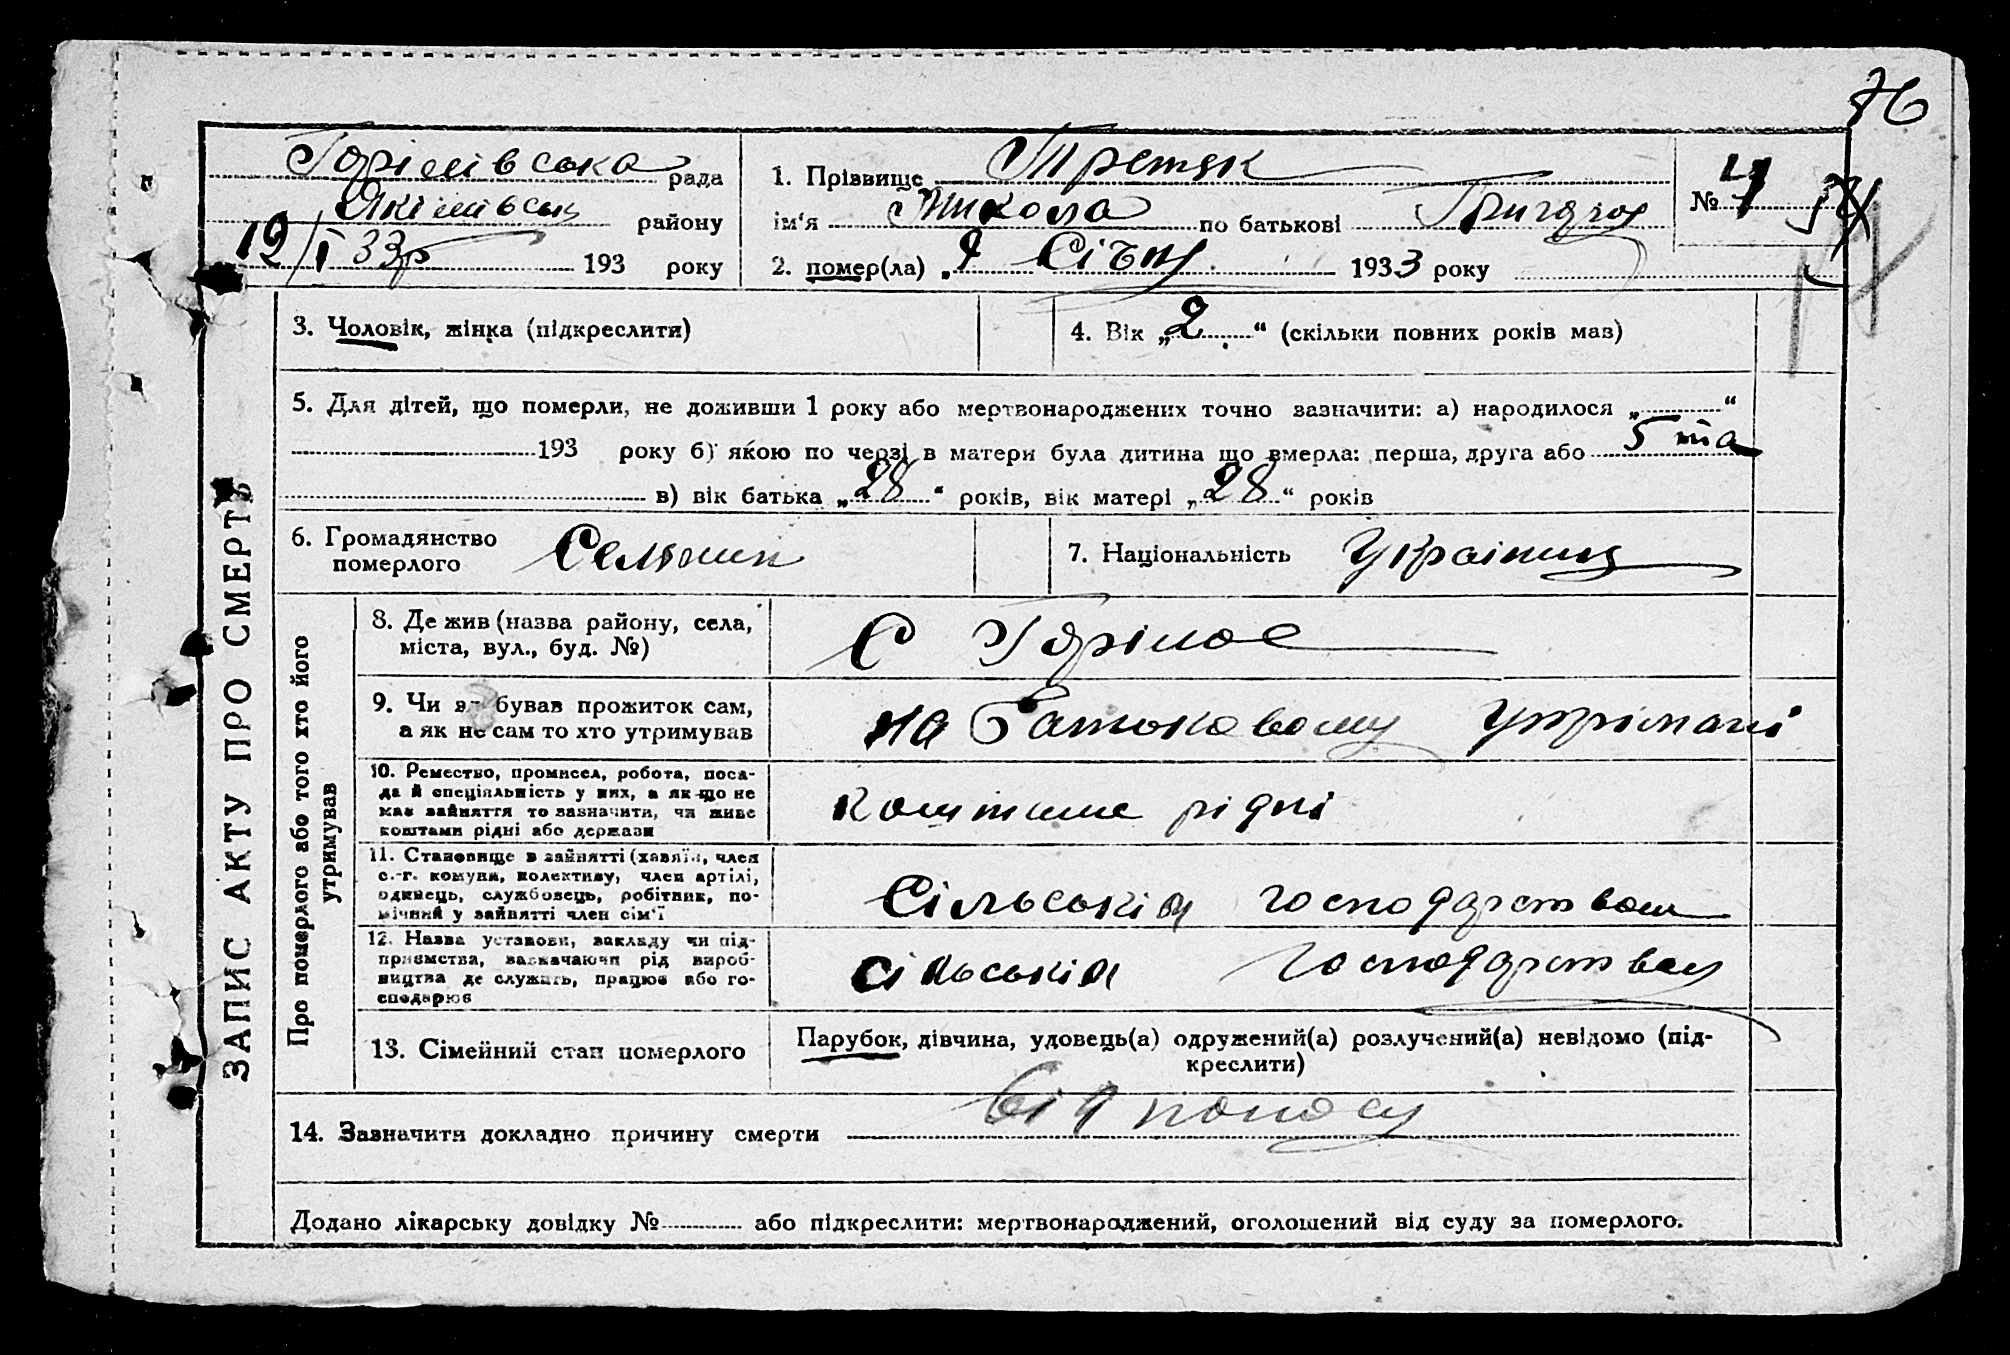 76
Горілівська рада
Якімівськ району
12/I 33р 193 року
1. Прізвище Третяк
ім'я Микола по батькові Григоров
2. помер(ла) „9 Січня 1933 року
№ 4
ЗАПИС АКТУ ПРО СМЕРТЬ
3. Чоловік, жінка (підкреслити)
4. Вік „2“ (скільки повних років мав)
5. Для дітей, що померли, не доживши 1 року або мертвонароджених точно зазначити: а) народилося „ “
193 року б) якою по черзі в матери була дитина що вмерла: перша, друга або 5 та
в) вік батька „28“ років, вік матері „28“ років
6. Громадянство
померлого Селянин
7. Національність Українец
Про померлого або того хто його
утримував
8. Де жив (назва району, села,
міста, вул., буд. №)
С Горілое
9. Чи здобував прожиток сам,
а як не сам то хто утримував
на Батьковому утрімані
10. Ремество, промисел, робота, поса-
да й спеціяльність у них, а як що не
має зайняття то зазначити, чи живе
коштами рідні або держави
коштаме рідні
11. Становище в зайнятті (хазяїн, член
с.-г. комуни, колективу, член артілі,
одинець, службовець, робітник, по-
мічний у зайнятті член сім'ї
Сільськім господарством
12. Назва установи, закладу чи під-
приємства, зазначаючи рід вироб-
ництва де служить, працює або го-
сподарює
сільськім господарством
13. Сімейний стан померлого
Парубок, дівчина, удовець(а) одружений(а) розлучений(а) невідомо (під-
креслити)
14. Зазначити докладно причину смерти від поносу
Додано лікарську довідку № або підкреслити: мертвонароджений, оголошений від суду за померлого.